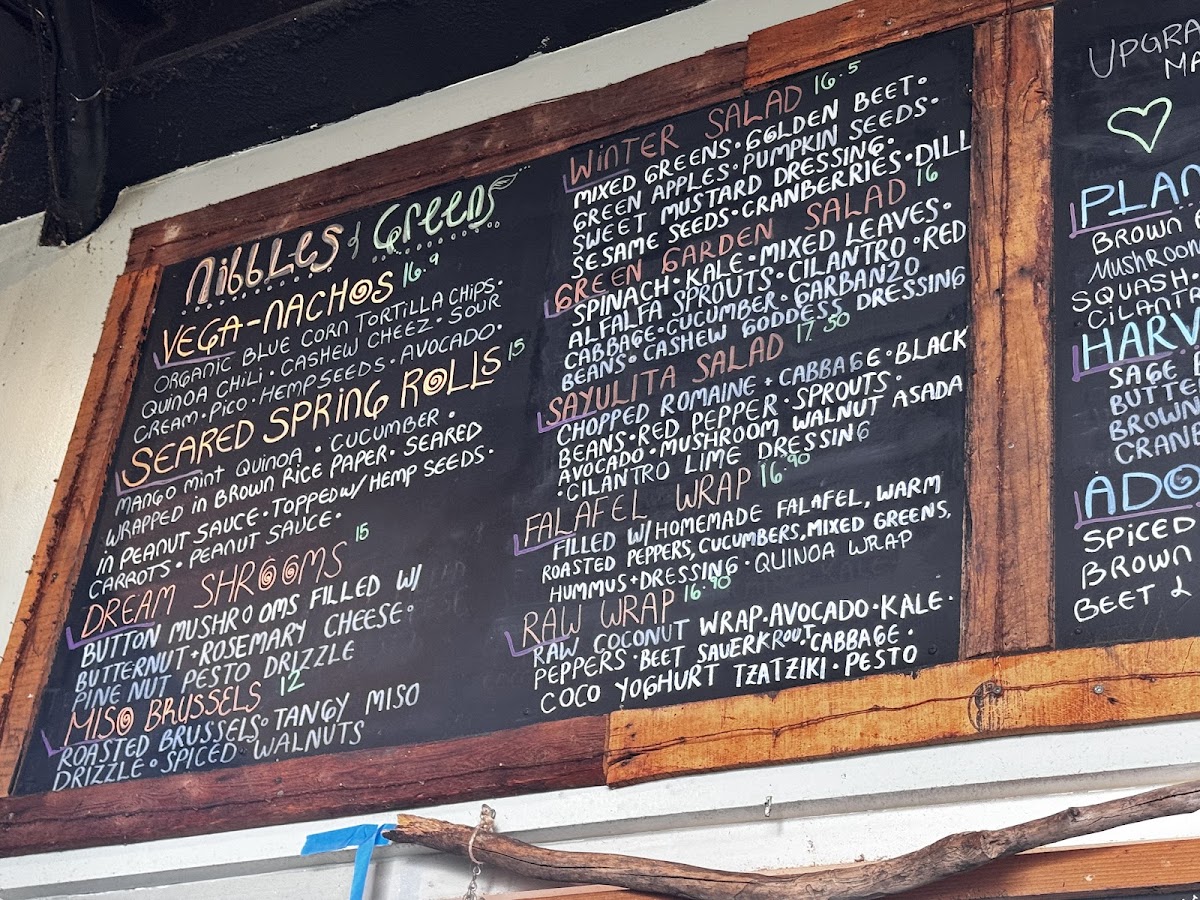 Nibbles & Greens
VEGA-NACHOS 16.9
ORGANIC BLUE CORN TORTILLA CHIPS•
QUINOA CHILI • CASHEW CHEEZ • SOUR
CREAM • PICO • HEMP SEEDS • AVOCADO•
SEARED SPRING ROLLS 15
MANGO MINT QUINOA • CUCUMBER •
WRAPPED IN BROWN RICE PAPER• SEARED
IN PEANUT SAUCE • TOPPED W/ HEMP SEEDS•
CARROTS • PEANUT SAUCE•
DREAM SHROOMS 15
BUTTON MUSHROOMS FILLED W/
BUTTERNUT + ROSEMARY CHEESE•
PINE NUT PESTO DRIZZLE
MISO BRUSSELS 12
ROASTED BRUSSELS• TANGY MISO
DRIZZLE • SPICED WALNUTS
WINTER SALAD 16.5
MIXED GREENS • GOLDEN BEET•
GREEN APPLES • PUMPKIN SEEDS•
SWEET MUSTARD DRESSING•
SESAME SEEDS • CRANBERRIES • DILL
GREEN GARDEN SALAD 16
SPINACH • KALE • MIXED LEAVES•
ALFALFA SPROUTS • CILANTRO • RED
CABBAGE • CUCUMBER • GARBANZO
BEANS • CASHEW GODDESS DRESSING
SAYULITA SALAD 17.50
CHOPPED ROMAINE + CABBAGE • BLACK
BEANS • RED PEPPER • SPROUTS •
AVOCADO • MUSHROOM WALNUT ASADA
• CILANTRO LIME DRESSING
FALAFEL WRAP 16.90
FILLED W/ HOMEMADE FALAFEL, WARM
ROASTED PEPPERS, CUCUMBERS, MIXED GREENS,
HUMMUS + DRESSING • QUINOA WRAP
RAW WRAP 16.90
RAW COCONUT WRAP • AVOCADO • KALE•
PEPPERS • BEET SAUERKROUT • CABBAGE•
COCO YOGHURT TZATZIKI • PESTO
UPGRA
MA
PLAN
BROWN
MUSHROOM
SQUASH•
CILANT
HARV
SAGE
BUTTE
BROWN
CRANB
ADO
SPICED
BROWN
BEET &